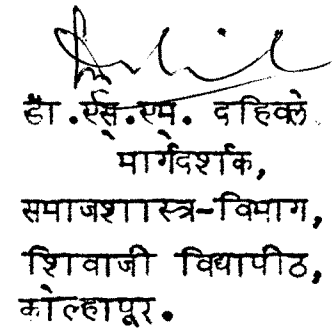 डॉ.एस्.एम. दहिवले
मार्गदर्शक,
समाजशास्त्र-विभाग,
शिवाजी विद्यापीठ,
कोल्हापूर.